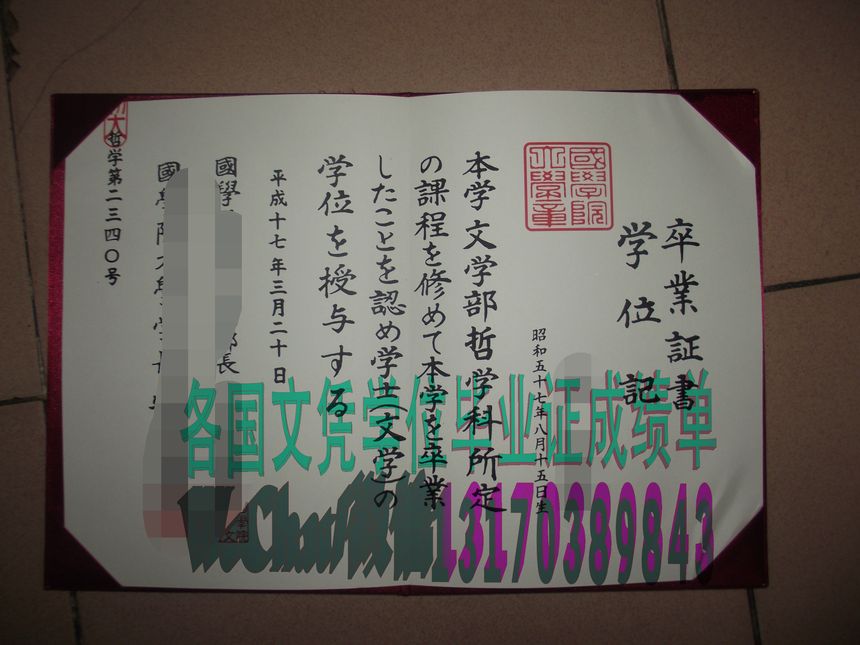 卒業証書
学位記
國學院
大學章
昭和五十七年八月十五日生
本学文学部哲学科所定
の課程を修めて本学を卒業
したことを認め学士(文学)の
学位を授与する
平成十七年三月二十日
國學
部長
國學院大學学長
大
哲学第二三四〇号
各国文凭学位毕业证成绩单
WeChat/微信13170389843